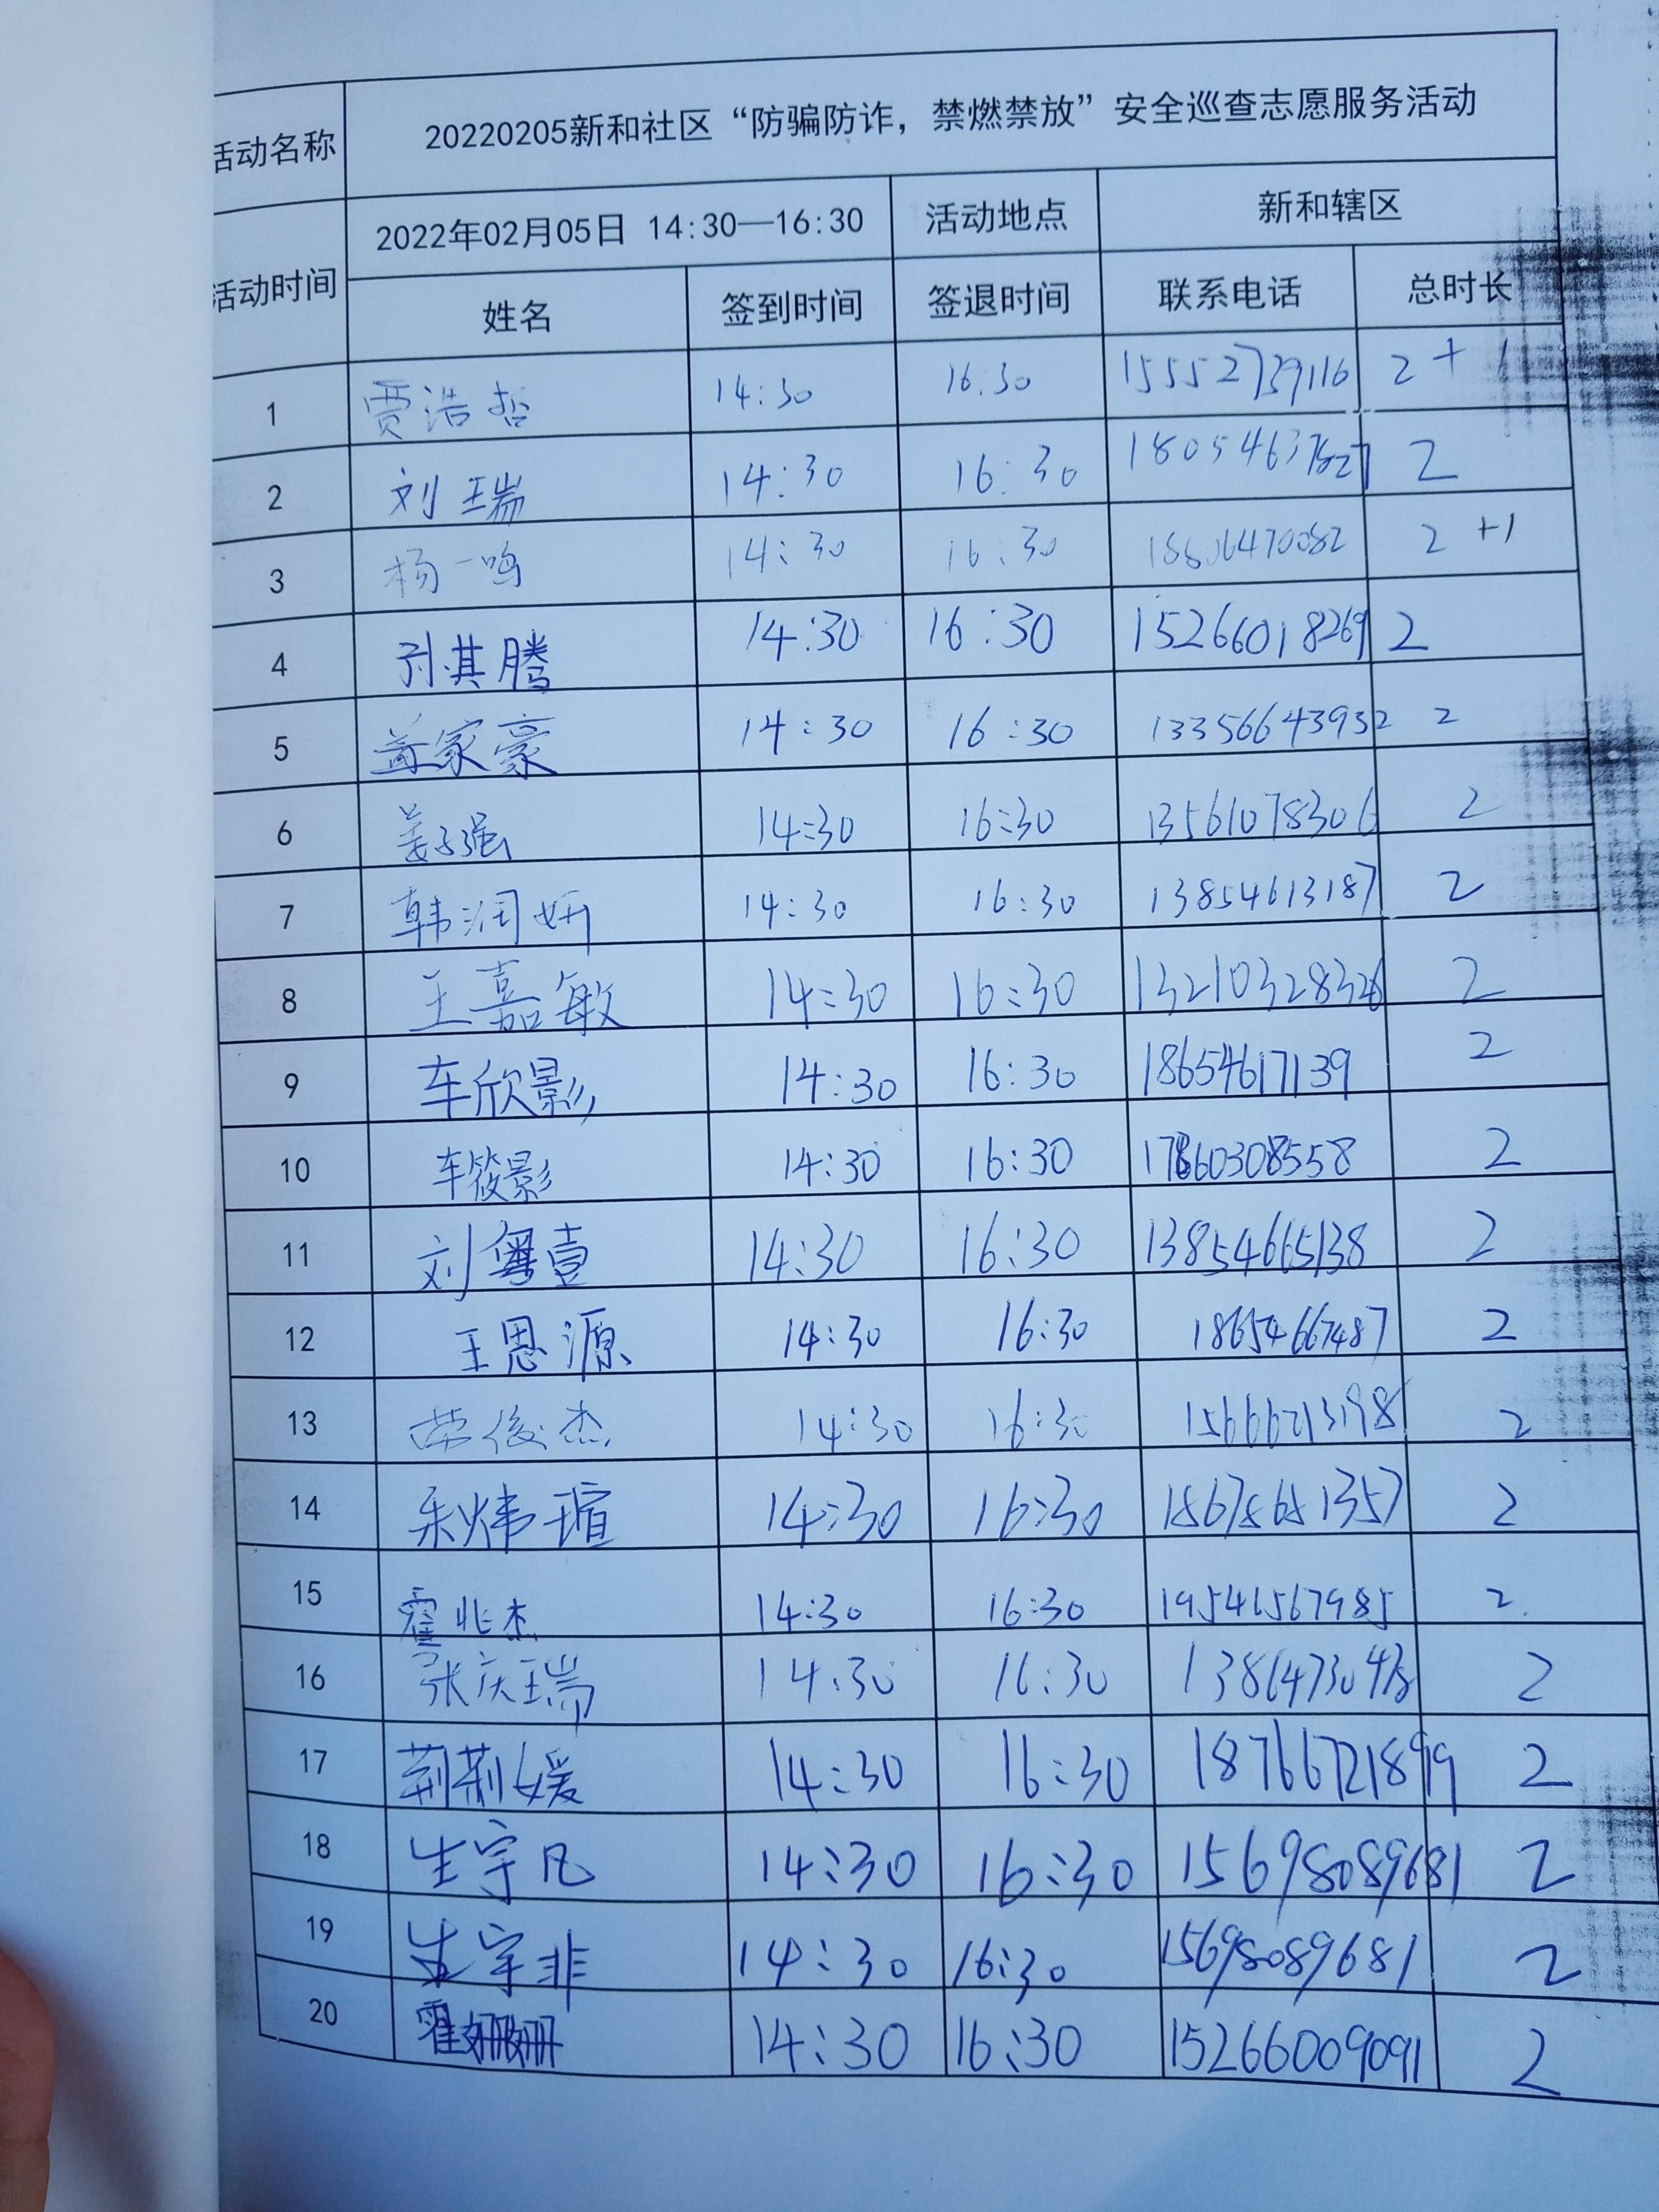 活动名称 20220205新和社区“防骗防诈，禁燃禁放”安全巡查志愿服务活动
活动时间 2022年02月05日 14:30—16:30 活动地点 新和辖区
姓名 签到时间 签退时间 联系电话 总时长
1 贾浩哲 14:30 16:30 15552739116 2+1
2 刘瑞 14:30 16:30 2
3 杨一鸣 14:30 16:30 2+1
4 孙其腾 14:30 16:30 15266018269 2
5 盖家豪 14:30 16:30 13356643932 2
6 姜子强 14:30 16:30 13561078306 2
7 韩润妍 14:30 16:30 13854613187 2
8 王嘉敏 14:30 16:30 13210328326 2
9 车欣影 14:30 16:30 18654617139 2
10 车筱影 14:30 16:30 17860308558 2
11 刘粤壹 14:30 16:30 13854665138 2
12 王恩源 14:30 16:30 18654667487 2
13 荣俊杰 14:30 16:30 15666213198 2
14 朱炜瑄 14:30 16:30 2
15 霍兆杰 14:30 16:30 19546567985 2
16 张庆瑞 14:30 16:30 2
17 荆莉媛 14:30 16:30 18766721899 2
18 生宇凡 14:30 16:30 15698089681 2
19 生宇非 14:30 16:30 15698089681 2
20 霍姗姗 14:30 16:30 15266009091 2